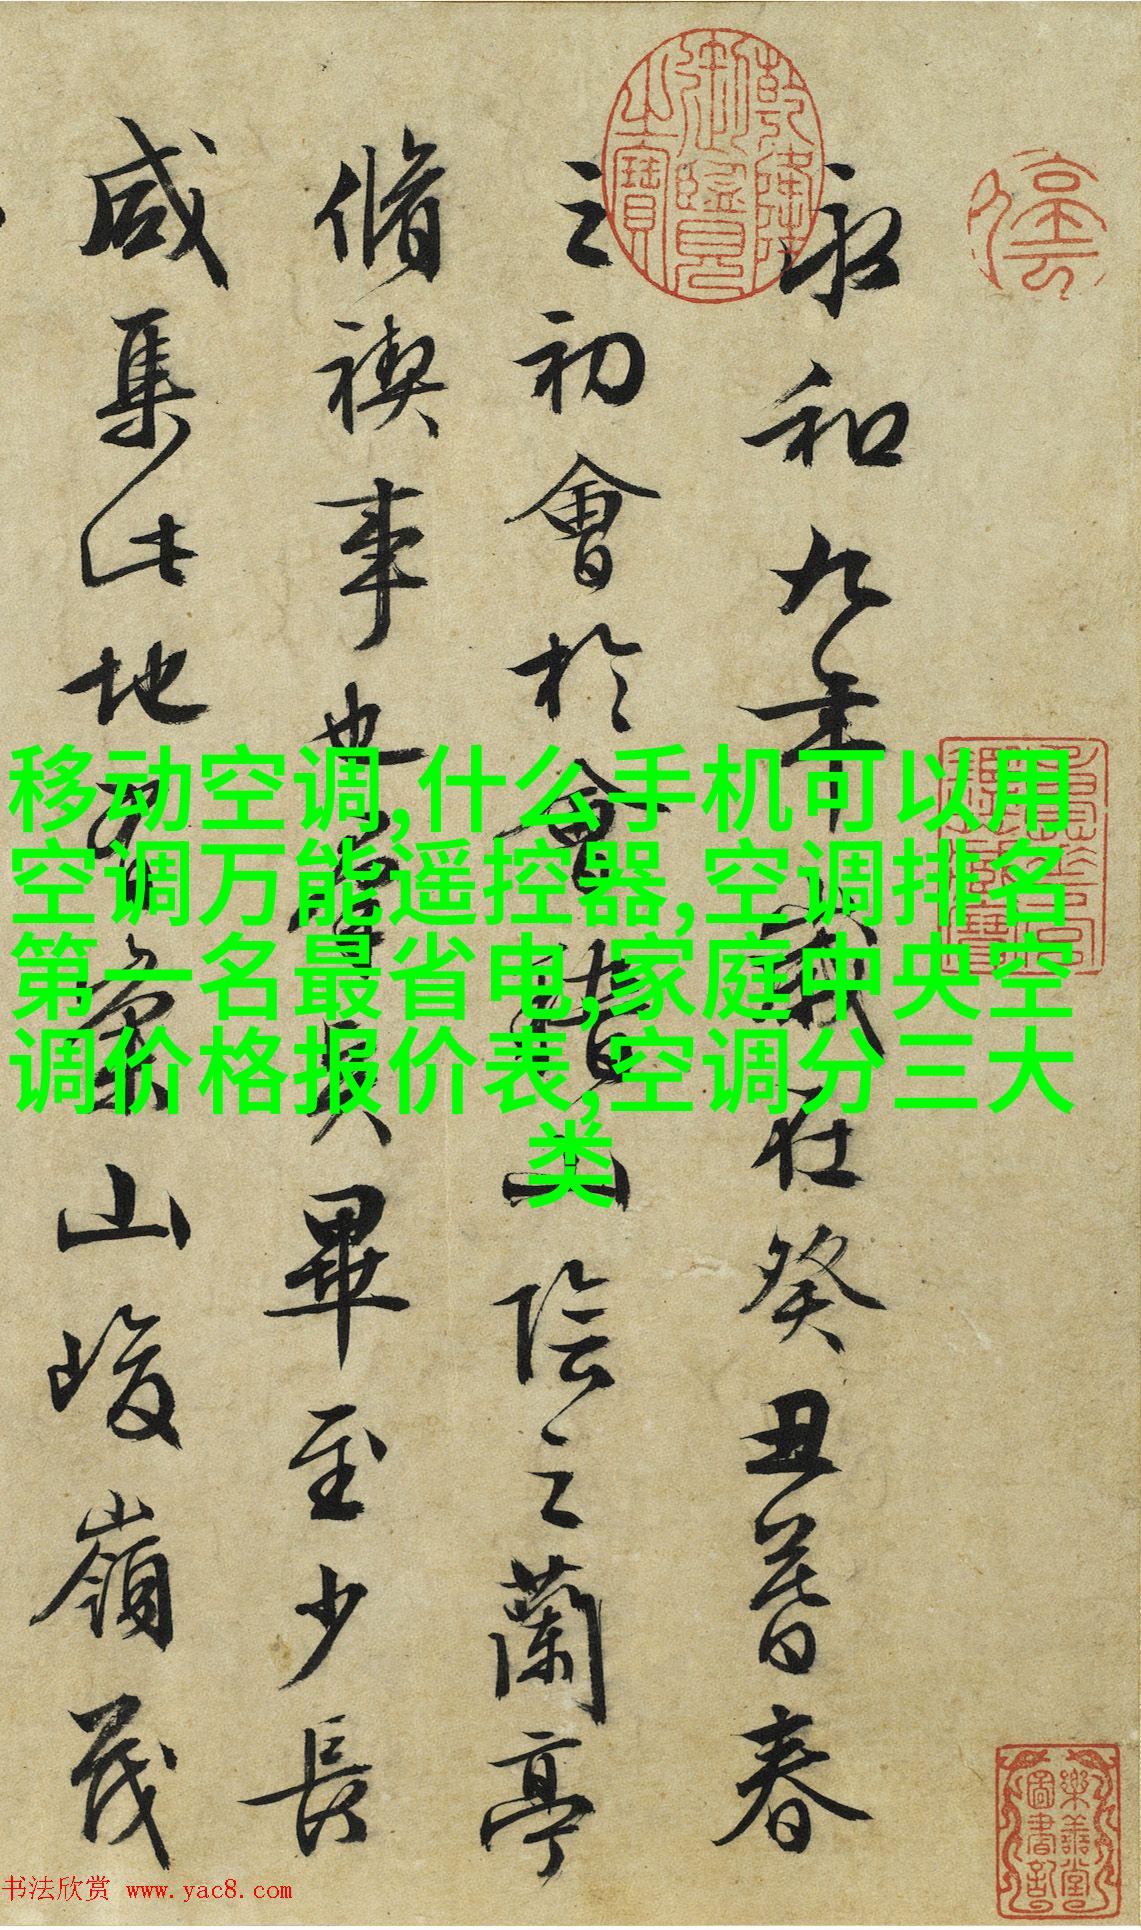 永和九年歲在癸丑暮春
之初會於會稽山陰之蘭亭
脩禊事也羣賢畢至少長
咸集此地有崇山峻嶺茂
乾隆御覽之寶
樂善堂圖書記
移动空调,什么手机可以用
空调万能遥控器,空调排名
第一名最省电,家庭中央空
调价格报价表,空调分三大
类
书法欣赏 www.yac8.com